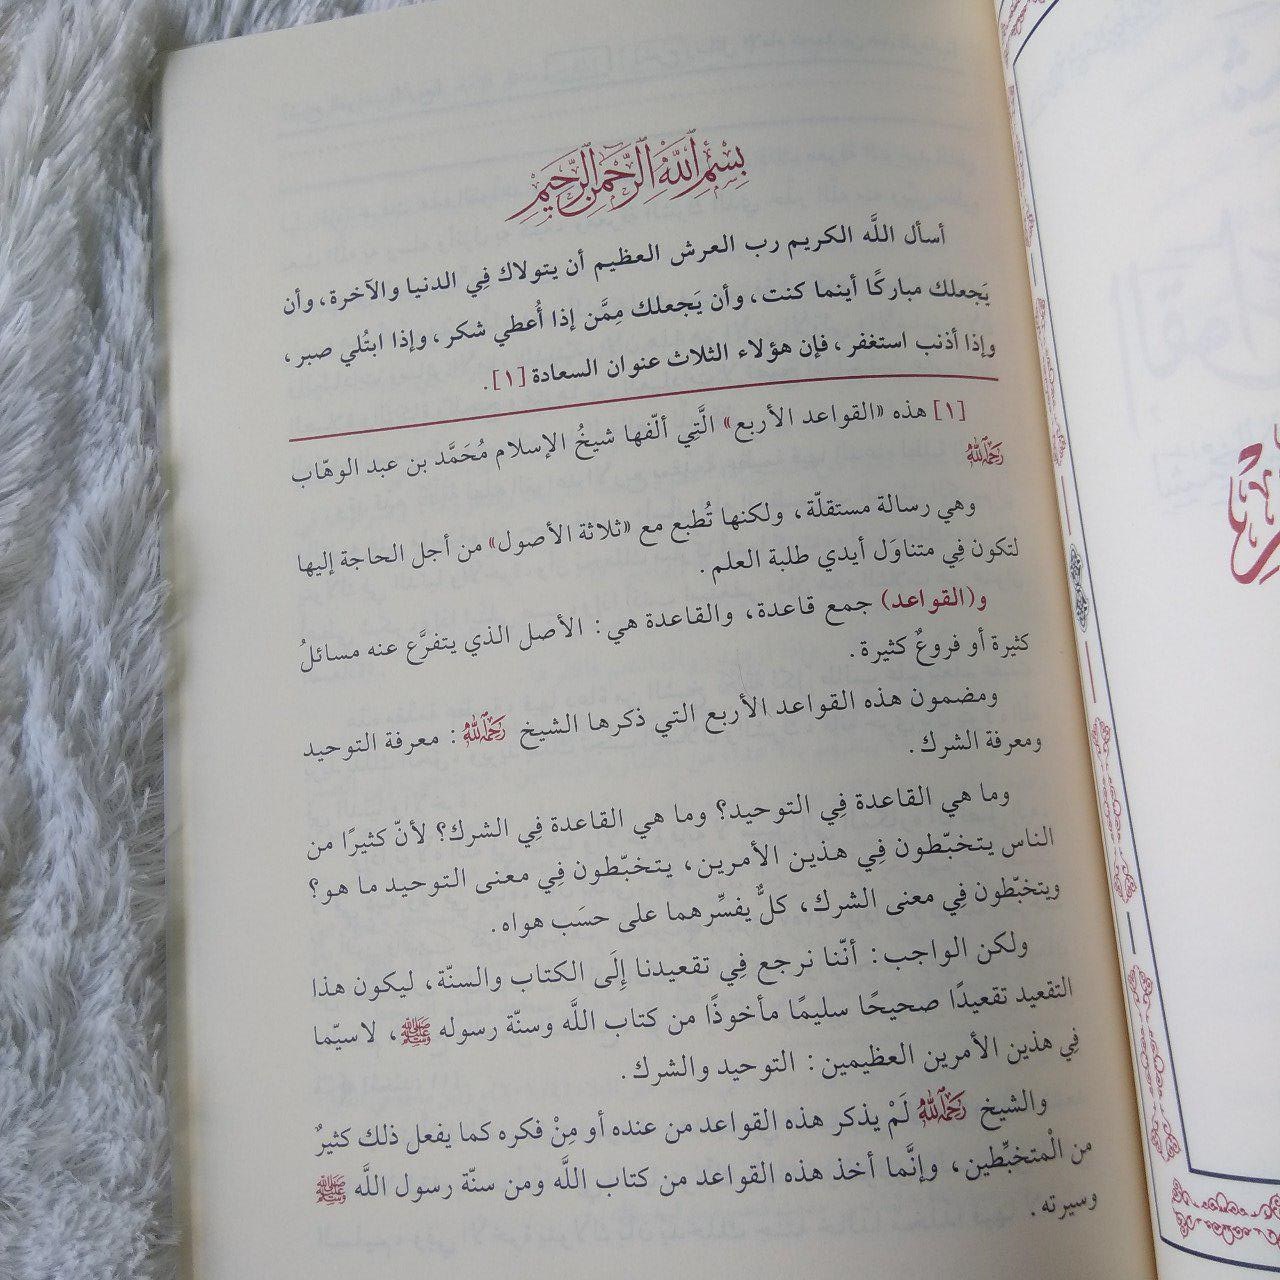 بِسْمِ اللَّهِ الرَّحْمَنِ الرَّحِيمِ
أسأل اللَّه الكريم رب العرش العظيم أن يتولاك فِي الدنيا والآخرة، وأن
يَجعلك مباركًا أينما كنت، وأن يَجعلك مِمَّن إذا أُعطي شكر، وإذا ابتُلي صبر،
وإذا أذنب استغفر، فإن هؤلاء الثلاث عنوان السعادة [١].
[١] هذه «القواعد الأربع» الَّتِي ألّفها شيخُ الإسلام مُحَمَّد بن عبد الوهّاب
رَحِمَهُ اللَّهُ
وهي رسالة مستقلّة، ولكنها تُطبع مع «ثلاثة الأصول» من أجل الحاجة إليها
لتكون فِي متناوَل أيدي طلبة العلم.
و(القواعد) جمع قاعدة، والقاعدة هي: الأصل الذي يتفرَّع عنه مسائلُ
كثيرة أو فروعٌ كثيرة.
ومضمون هذه القواعد الأربع التي ذكرها الشيخ رَحِمَهُ اللَّهُ: معرفة التوحيد
ومعرفة الشرك.
وما هي القاعدة فِي التوحيد؟ وما هي القاعدة فِي الشرك؟ لأنّ كثيرًا من
الناس يتخبّطون فِي هذين الأمرين، يتخبّطون فِي معنى التوحيد ما هو؟
ويتخبّطون فِي معنى الشرك، كلٌّ يفسِّرهما على حسَب هواه.
ولكن الواجب: أنّنا نرجع فِي تقعيدنا إِلَى الكتاب والسنّة، ليكون هذا
التقعيد تقعيدًا صحيحًا سليمًا مأخوذًا من كتاب اللَّه وسنّة رسوله ﷺ، لاسيّما
فِي هذين الأمرين العظيمين: التوحيد والشرك.
والشيخ رَحِمَهُ اللَّهُ لَمْ يذكر هذه القواعد من عنده أو مِنْ فكره كما يفعل ذلك كثيرٌ
من الْمتخبِّطين، وإنَّما أخذ هذه القواعد من كتاب اللَّه ومن سنّة رسول اللَّه ﷺ
وسيرته.